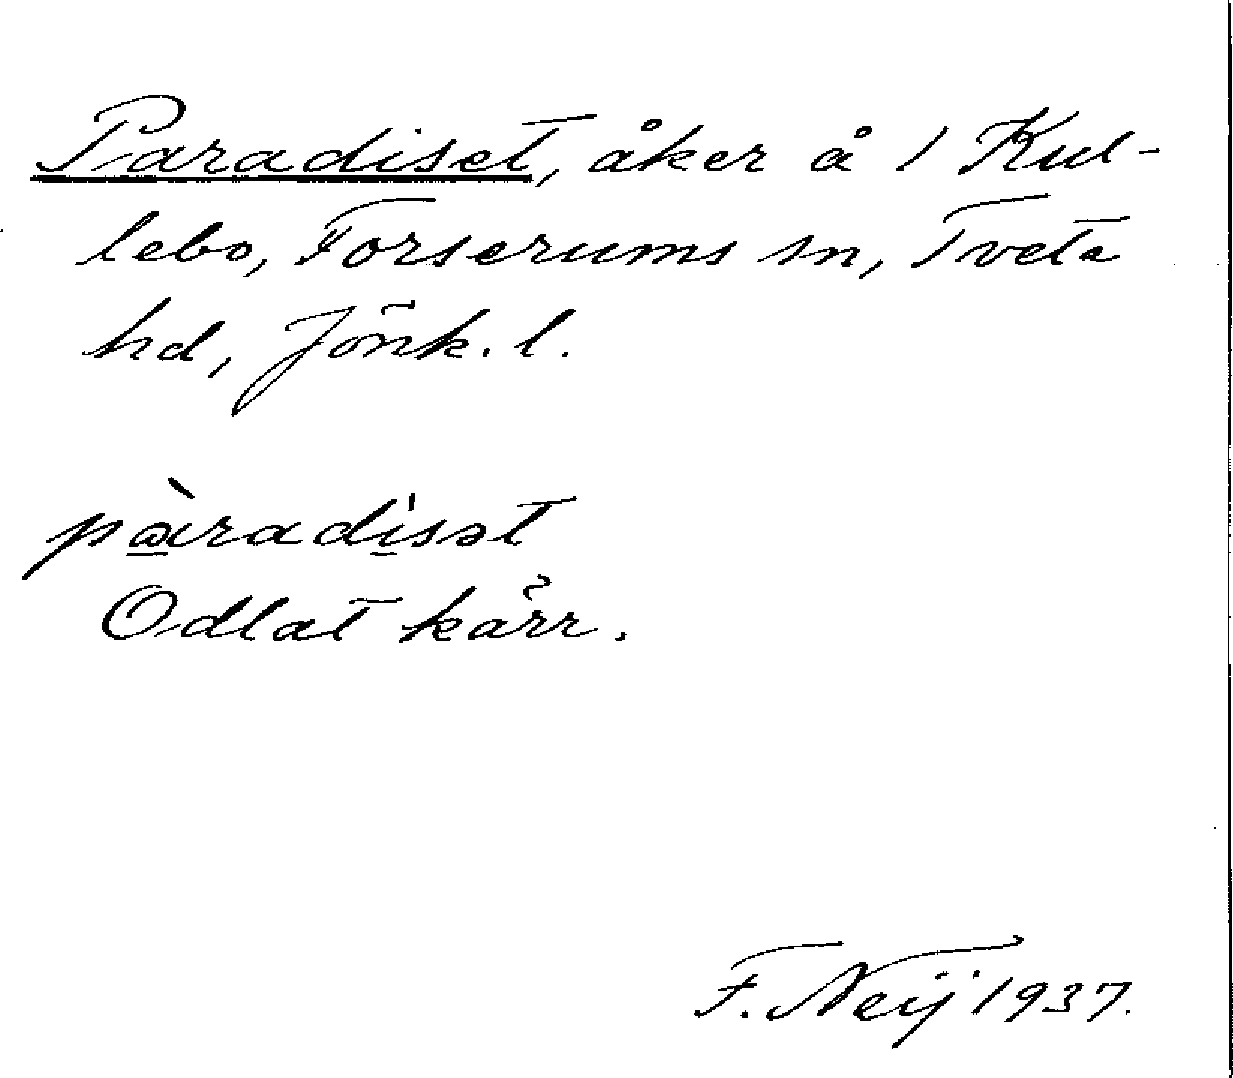 Paradiset, åker å 1 Kul-
lebo, Forserums sn, Tveta
hd, Jönk. l.
pàradi̍sət
Odlat kärr.
F. Neij 1937.